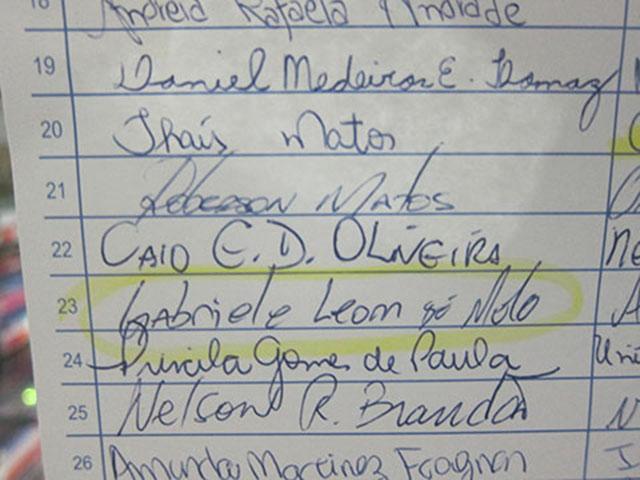 18 Andreia Rafaela Andrade
19 Daniel Medeiros E. Damaz
20 Thaís Matos
21 Roberson Matos
22 CAIO E. D. OLIVEIRA Ne
23 Gabriele Leom A
24 Priscila Gomes de Paula Uni
25 Nelson R. Brandão N
26 Amanda Martinez